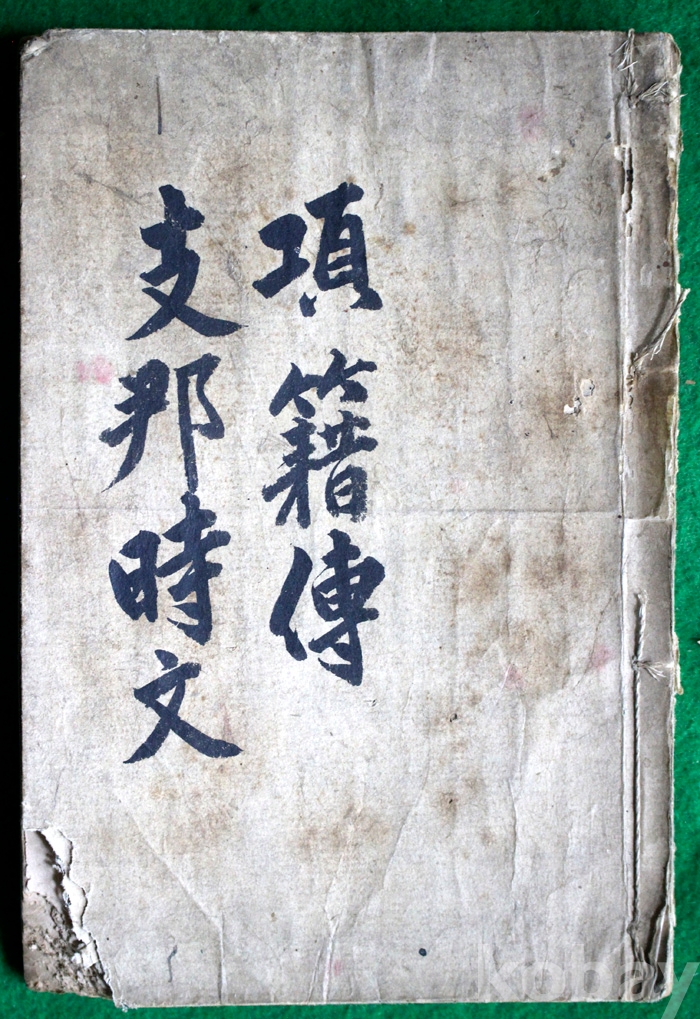 項籍傳
支那時文
kobay